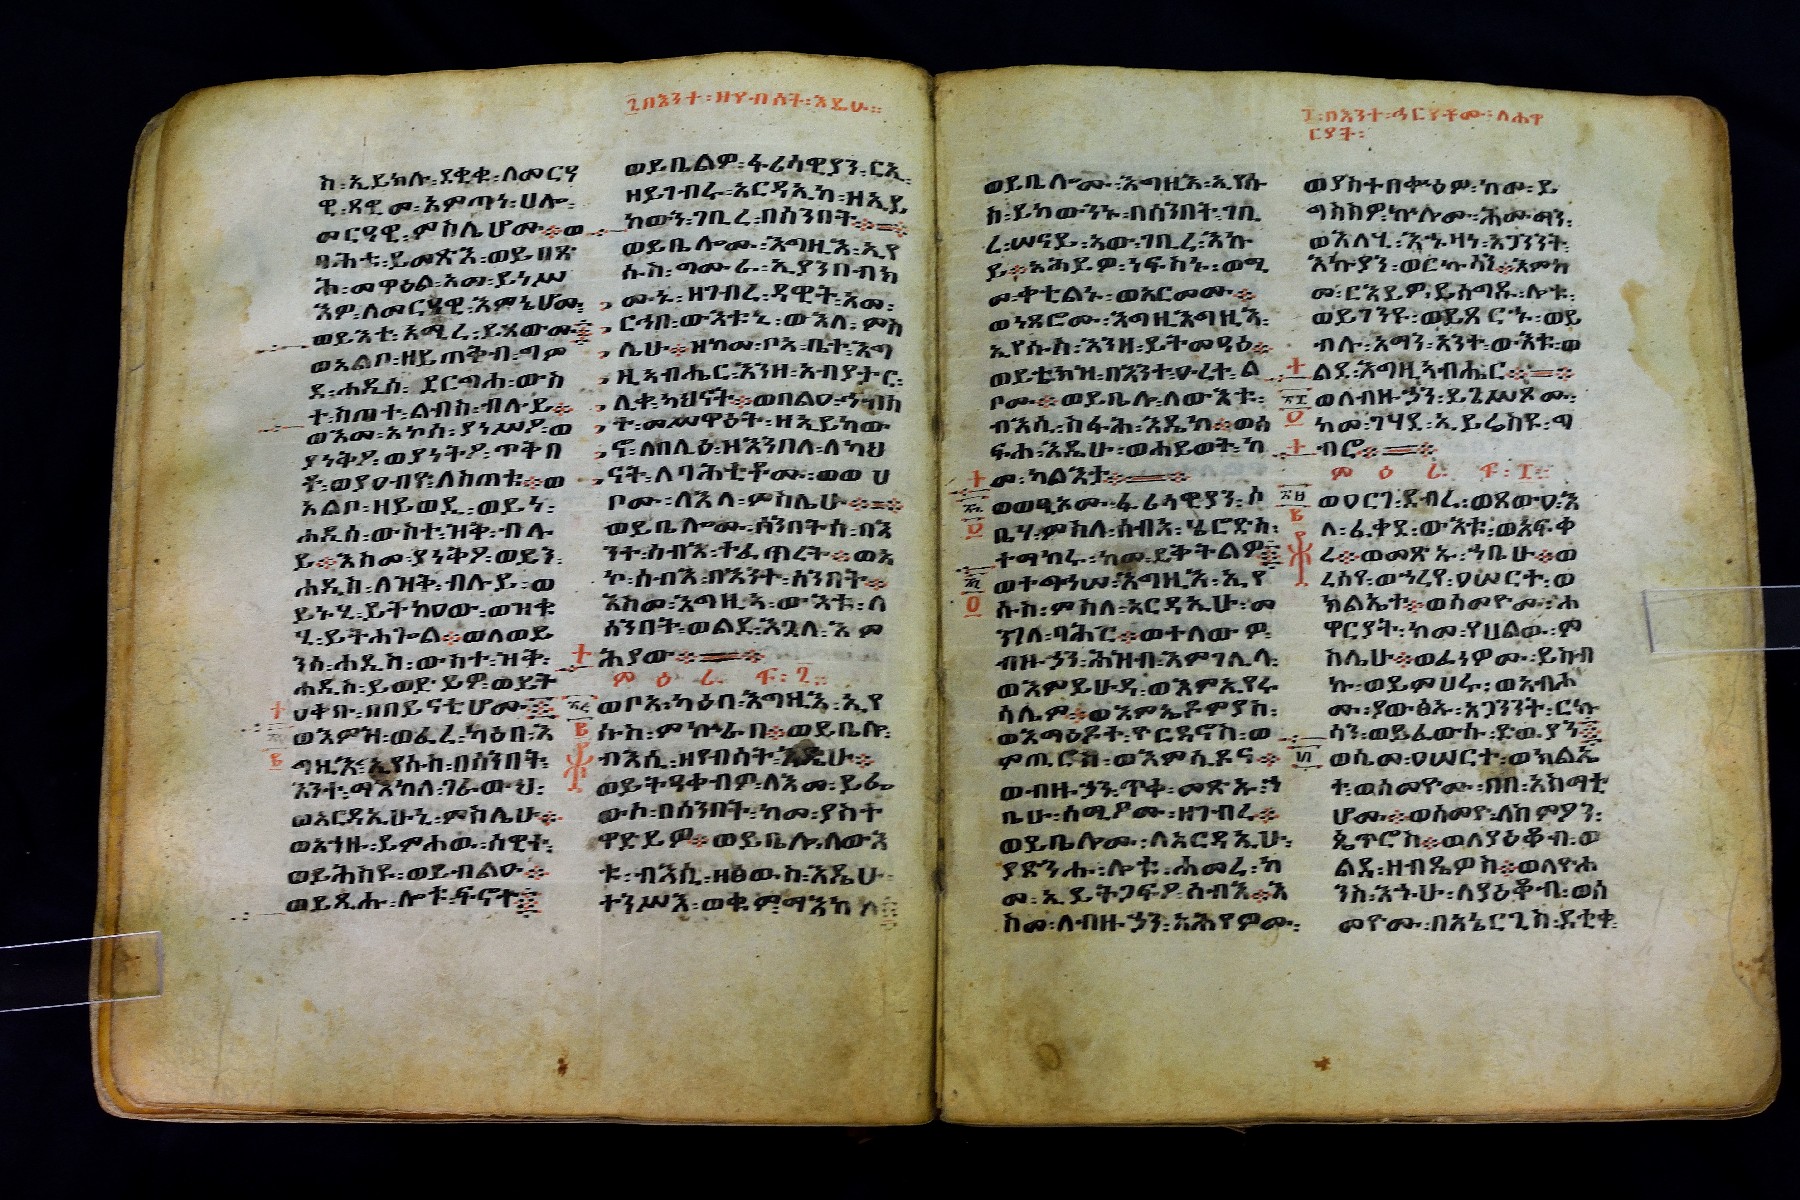 ፱በእንተ፡ዘየብሰት፡እዴሁ።
ኬ፡ኢይክሉ፡ደቂቁ፡ለመርዓ
ዊ፡ጸዊመ፡አምጣነ፡ሀሎ፡
መርዓዊ፡ምስሌሆሙ፨ወ
ባሕቱ፡ይመጽእ፡ወይበጽ
ሕ፡መዋዕል፡አመ፡ይነሥ
እዎ፡ለመርዓዊ፡እምኔሆሙ፡
ወይእተ፡አሚረ፡ይጸውሙ፨
ወአልቦ፡ዘይጠቅብ፡ግም
ደ፡ሐዲሰ፡ደርግሐ፡ውስ
ተ፡ስጠተ፡ልብስ፡ብሉይ፨
ወእመ፡አኮሰ፡ያነሥኦ፡ወ
ያነቅዖ፡ወያነትዖ፡ጥቅበ
ቱ፡ወያዐብዮ፡ለስጠቱ፨ወ
አልቦ፡ዘይወዲ፡ወይነ፡
ሐዲሰ፡ውስተ፡ዝቅ፡ብሉ
ይ፨እስመ፡ያነቅዖ፡ወይን፡
ሐዲስ፡ለዝቅ፡ብሉይ፡ወ
ይኑሂ፡ይትከዐው፡ወዝቁ
ሂ፡ይትሐጐል፨ወለወይ
ንሰ፡ሐዲስ፡ውስተ፡ዝቅ፡
ሐዲስ፡ይወድይዎ፡ወይት
ዐቀቡ፡በበይናቲሆሙ፨
ወእምዝ፡ወፈረ፡ካዕበ፡እ
ግዚእ፡ኢየሱስ፡በሰንበት፡
እንተ፡ማእከለ፡ገራውህ፡
ወአርዳኢሁኒ፡ምስሌሁ፨
ወአኀዙ፡ይምሐው፡ሰዊተ፡
ወይሕስዩ፡ወይብልዑ፨
ወይጺሑ፡ሎቱ፡ፍኖተ፨
ወይቤልዎ፡ፈሪሳዊያን፡ርኢ፡
ዘይገብሩ፡አርዳኢከ፡ዘኢይ
ከውን፡ገቢረ፡በሰንበት፨
ወይቤሎሙ፡እግዚእ፡ኢየ
ሱስ፡ግሙራ፡ኢያንበብክ
ሙኑ፡ዘገብረ፡ዳዊት፡አመ፡
ርኅበ፡ውእቱኒ፡ወእለ፡ምስ
ሌሁ፨ዘከመ፡ቦአ፡ቤተ፡እግ
ዚአብሔር፡እንዘ፡አብያታር፡
ሊቀ፡ካህናት፨ወበልዐ፡ኅብስ
ተ፡መሥዋዕት፡ዘኢይከው
ኖ፡ለበሊዕ፡ዘእንበለ፡ለካህ
ናት፡ለባሕቲቶሙ፡ወወሀ
ቦሙ፡ለእለ፡ምስሌሁ፨
ወይቤሎሙ፡ሰንበትሰ፡በእ
ንተ፡ሰብእ፡ተፈጥረት፨ወአ
ኮ፡ሰብእ፡በእንተ፡ሰንበት፨
እስመ፡እግዚኣ፡ውእቱ፡ለ
ሰንበት፡ወልደ፡እጓለ፡እም
ሕያው፨
ምዕራፍ፡፱።
ወቦአ፡ካዕበ፡እግዚእ፡ኢየ
ሱስ፡ምኵራበ፨ወይቤሎ፡
ብእሲ፡ዘየብሰት፡እዴሁ፨
ወይትዓቀብዎ፡ለእመ፡ይፌ
ውስ፡በሰንበት፡ከመ፡ያስተ
ዋድይዎ፨ወይቤሎ፡ለውእ
ቱ፡ብእሲ፡ዘፅውስ፡እዴሁ፡
ተንሥእ፡ወቁም፡ማእከለ፨
፲፡በእንተ፡ኃርዮቶሙ፡ለሐዋ
ርያት፡
ወይቤሎሙ፡እግዚእ፡ኢየሱ
ስ፡ይከውንኑ፡በሰንበት፡ገቢ
ረ፡ሠናይ፡አው፡ገቢረ፡እኩ
ይ፨አሕይዎ፡ነፍስኑ፡ወሚ
መ፡ቀቲልኑ፡ወአርመሙ፨
ወነጸሮሙ፡እግዚእግዚእ፡
ኢየሱስ፡እንዘ፡ይትመዓዕ፨
ወይቴክዝ፡በእንተ፡ዑረተ፡ል
ቦሙ፨ወይቤሎ፡ለውእቱ፡
ብእሲ፡ስፋሕ፡እዴከ፨ወሰ
ፍሐ፡እዴሁ፡ወሐይወት፡ከ
መ፡ካልእታ፨
ወወፂኦሙ፡ፈሪሳዊያን፡ሶ
ቤሃ፡ምስለ፡ሰብአ፡ሄሮድስ፡
ተማከሩ፡ከመ፡ይቅትልዎ፨
ወተግኅሠ፡እግዚእ፡ኢየ
ሱስ፡ምስለ፡አርዳኢሁ፡መ
ንገለ፡ባሕር፨ወተለውዎ፡
ብዙኃን፡ሕዝብ፡እምገሊላ፡
ወእምይሁዳ፡ወእምኢየሩ
ሳሌም፨ወእምኤዶምያስ፡
ወእማዕዶተ፡ዮርዳኖስ፡ወ
ምጢሮስ፡ወእምሲዶና፨
ወብዙኃን፡ጥቀ፡መጽኡ፡ኀ
ቤሁ፡ሰሚዖሙ፡ዘገብረ፨
ወይቤሎሙ፡ለአርዳኢሁ፡
ያጽንሑ፡ሎቱ፡ሐመረ፡ከ
መ፡ኢይትጋፍዖ፡ሰብእ፨እ
ስመ፡ለብዙኃን፡አሕየዎሙ፡
ወያስተበቍዕዎ፡ከመ፡ይ
ግስስዎ፡ኵሎሙ፡ሕሙማን፡
ወእለሂ፡እኁዛነ፡አጋንንት፡
እኩያን፡ወርኩሳን፨እምከ
መ፡ርእይዎ፡ይሰግዱ፡ሎቱ፡
ወይገንዩ፡ወይጸርኁ፡ወይ
ብሉ፡አማን፡አንተ፡ውእቱ፡ወ
ልደ፡እግዚአብሔር፨
ወለብዙኃን፡ይጌሥጾሙ፡
ከመ፡ገሃደ፡ኢይሬስዩ፡ግ
ብሮ፨
ምዕራፍ፡፲።
ወዐርገ፡ደብረ፡ወጸውዐ፡እ
ለ፡ፈቀደ፡ውእቱ፡ወአፍቀ
ረ፨ወመጽኡ፡ኀቤሁ፨ወ
ረሰየ፡ወኀረየ፡ዐሠርተ፡ወ
ክልኤተ፨ወሰመዮሙ፡ሐ
ዋርያት፡ከመ፡የሀልው፡ም
ስሌሁ፨ወፈነዎሙ፡ይስብ
ኩ፡ወይምሀሩ፡ወአብሖ
ሙ፡ያውፅኡ፡አጋንንት፡ርኩ
ሳን፡ወይፈውሱ፡ድዉያን፨
ወሴመ፡ዐሠርተ፡ወክልኤ
ተ፡ወሰመዮሙ፡በበ፡አስማቲ
ሆሙ፨ወሰመዮ፡ለስምዖን፡
ጴጥሮስ፨ወለያዕቆብ፡ወ
ልደ፡ዘብዴዎስ፨ወለዮሐ
ንስ፡እኁሁ፡ለያዕቆብ፡ወሰ
መዮሙ፡በአኔርጌስ፡ደቂቀ፡